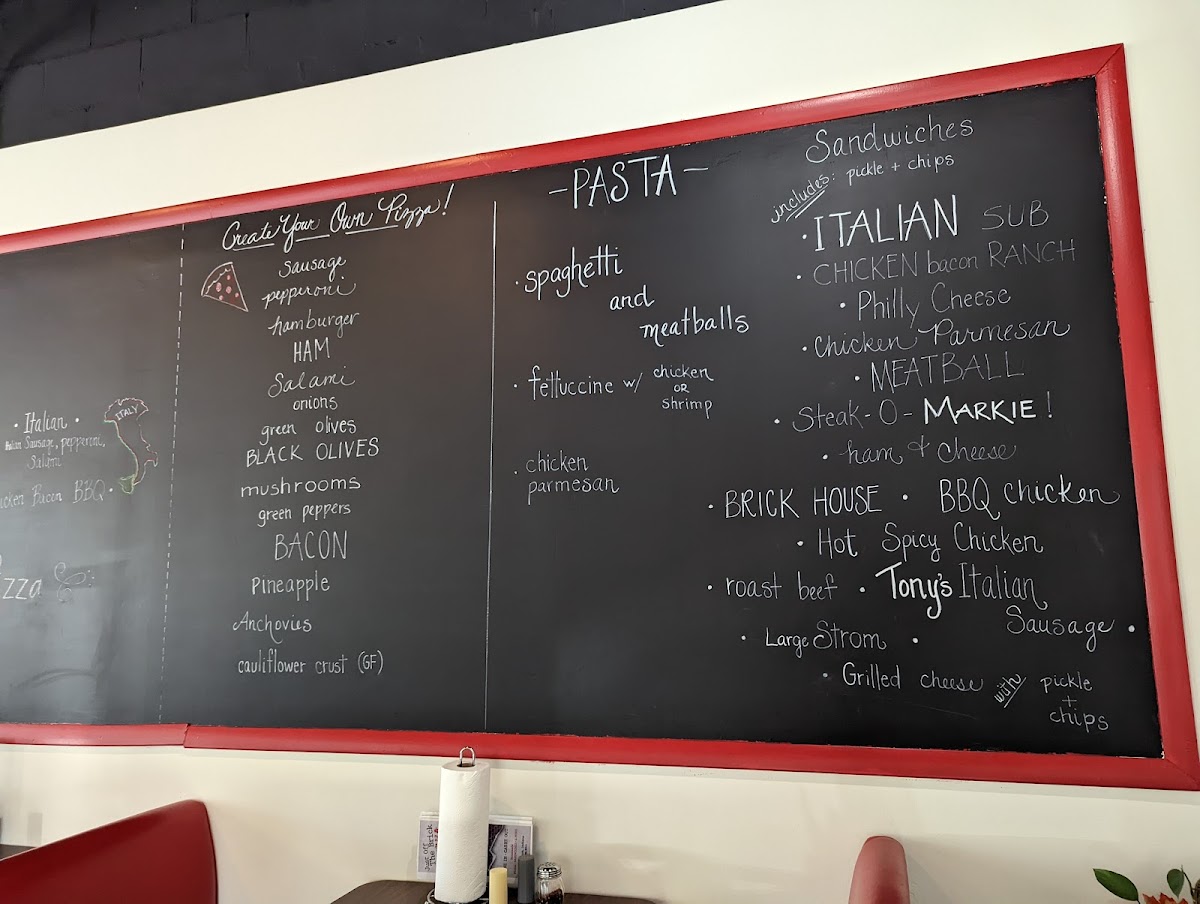 • Italian •
Italian Sausage, pepperoni,
Salami
ITALY
Chicken Bacon BBQ •
Create Your Own Pizza!
sausage
pepperoni
hamburger
HAM
Salami
onions
green olives
BLACK OLIVES
mushrooms
green peppers
BACON
Pineapple
Anchovies
cauliflower crust (GF)
- PASTA -
• spaghetti
and
meatballs
• fettuccine w/ chicken
OR
shrimp
• chicken
parmesan
Sandwiches
includes: pickle + chips
• ITALIAN SUB
• CHICKEN bacon RANCH
• Philly Cheese
• Chicken Parmesan
• MEATBALL
• Steak-O-MARKIE!
• ham & Cheese
• BRICK HOUSE • BBQ chicken
• Hot Spicy Chicken
• roast beef • Tony's Italian
Sausage •
• Large Strom •
• Grilled cheese with pickle
+
chips
Just Off
The Brick